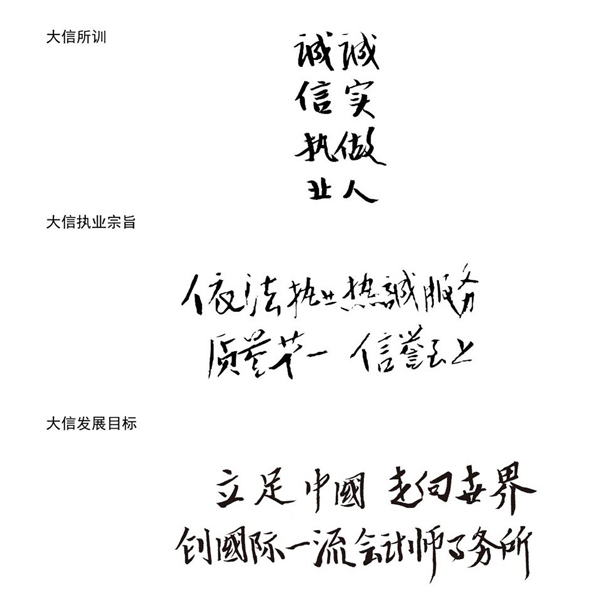 大信所训
诚实做人
诚信执业
大信执业宗旨
依法执业热誠服务
质量第一 信誉至上
大信发展目标
立足中國 走向世界
创國际一流会计师事务所